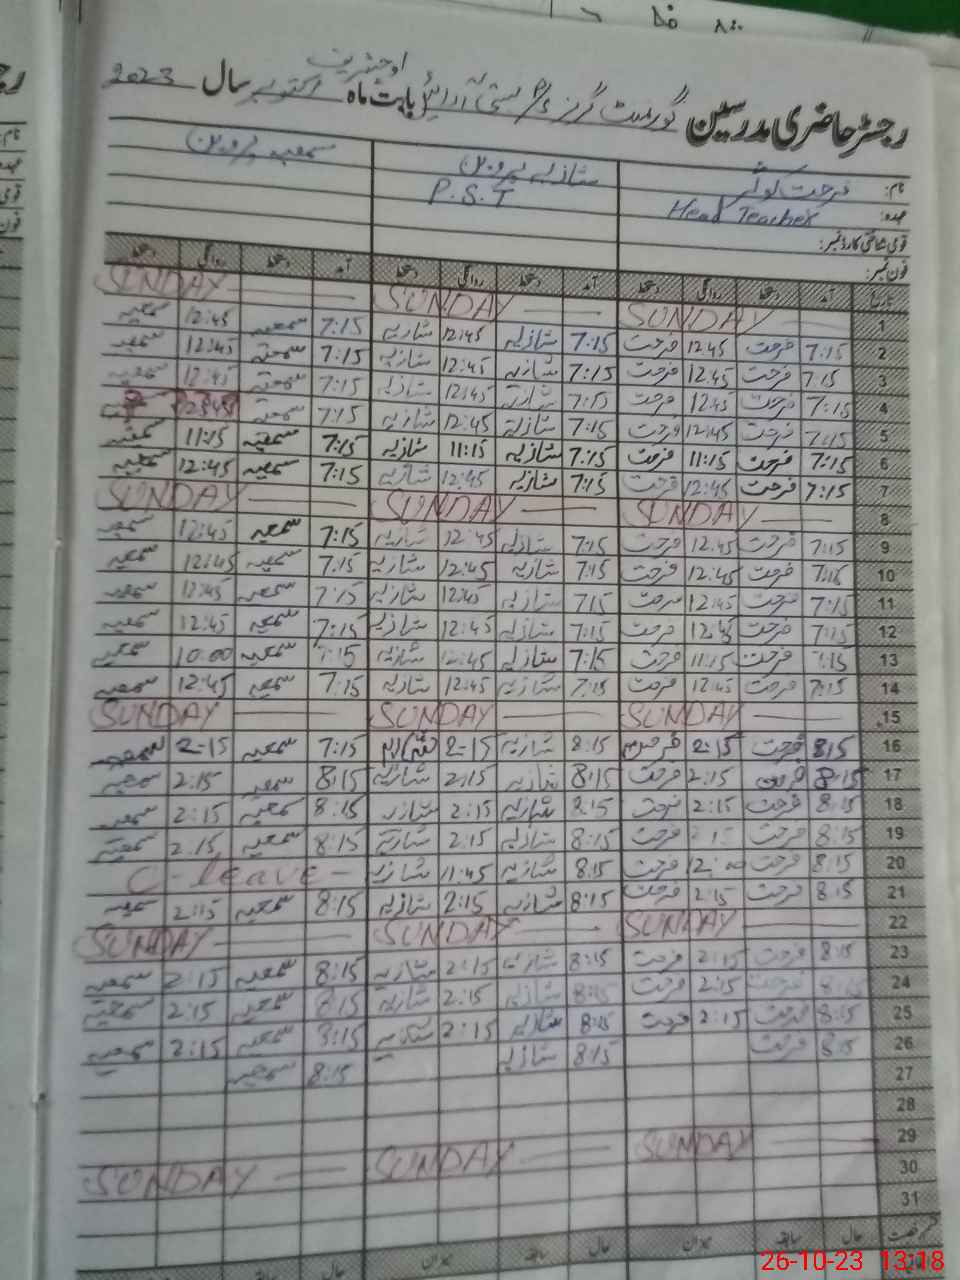 رجسٹر حاضری مدرسین گورنمنٹ گرلز بستی آرائیں اوچشریف بابت ماہ اکتوبر سال 2023
نام: فرحت کوثر شازیہ پروین سمعیہ پروین
عہدہ: Head Teacher P.S.T
قومی شناختی کارڈ نمبر:
فون نمبر:
تاریخ آمد دستخط روانگی دستخط آمد دستخط روانگی دستخط آمد دستخط روانگی دستخط
1 SUNDAY SUNDAY SUNDAY
2 7:15 فرحت 12:45 فرحت 7:15 شازیہ 12:45 شازیہ 7:15 سمعیہ 12:45 سمعیہ
3 7:15 فرحت 12:45 فرحت 7:15 شازیہ 12:45 شازیہ 7:15 سمعیہ 12:45 سمعیہ
4 7:15 فرحت 12:45 فرحت 7:15 شازیہ 12:45 شازیہ 7:15 سمعیہ 12:45 سمعیہ
5 7:15 فرحت 12:45 فرحت 7:15 شازیہ 12:45 شازیہ 7:15 سمعیہ 12:45
6 7:15 فرحت 11:15 فرحت 7:15 شازیہ 11:15 شازیہ 7:15 سمعیہ 11:15 سمعیہ
7 7:15 فرحت 12:45 فرحت 7:15 شازیہ 12:45 شازیہ 7:15 سمعیہ 12:45 سمعیہ
8 SUNDAY SUNDAY SUNDAY
9 7:15 فرحت 12:45 فرحت 7:15 شازیہ 12:45 شازیہ 7:15 سمعیہ 12:45 سمعیہ
10 7:15 فرحت 12:45 فرحت 7:15 شازیہ 12:45 شازیہ 7:15 سمعیہ 12:45 سمعیہ
11 7:15 فرحت 12:45 فرحت 7:15 شازیہ 12:45 شازیہ 7:15 سمعیہ 12:45 سمعیہ
12 7:15 فرحت 12:45 فرحت 7:15 شازیہ 12:45 شازیہ 7:15 سمعیہ 12:45 سمعیہ
13 7:15 فرحت 11:15 فرحت 7:15 شازیہ 12:45 شازیہ 7:15 سمعیہ 10:00 سمعیہ
14 7:15 فرحت 12:45 فرحت 7:15 شازیہ 12:45 شازیہ 7:15 سمعیہ 12:45 سمعیہ
15 SUNDAY SUNDAY SUNDAY
16 8:15 فرحت 2:15 8:15 شازیہ 2:15 7:15 سمعیہ 2:15 سمعیہ
17 8:15 فرحت 2:15 فرحت 8:15 شازیہ 2:15 شازیہ 8:15 سمعیہ 2:15 سمعیہ
18 8:15 فرحت 2:15 فرحت 8:15 شازیہ 2:15 شازیہ 8:15 سمعیہ 2:15 سمعیہ
19 8:15 فرحت 2:15 فرحت 8:15 شازیہ 2:15 شازیہ 8:15 سمعیہ 2:15 سمعیہ
20 8:15 فرحت 12:00 فرحت 8:15 شازیہ 11:45 شازیہ C-leave-
21 8:15 فرحت 2:15 فرحت 8:15 شازیہ 2:15 شازیہ 8:15 سمعیہ 2:15 سمعیہ
22 SUNDAY SUNDAY SUNDAY
23 8:15 فرحت 2:15 فرحت 8:15 شازیہ 2:15 شازیہ 8:15 سمعیہ 2:15 سمعیہ
24 8:15 فرحت 2:15 فرحت 8:15 شازیہ 2:15 شازیہ 8:15 سمعیہ 2:15 سمعیہ
25 8:15 فرحت 2:15 فرحت 8:15 شازیہ 2:15 شازیہ 8:15 سمعیہ 2:15 سمعیہ
26 8:15 فرحت 8:15 شازیہ 8:15 سمعیہ
27
28
29 SUNDAY SUNDAY SUNDAY
30
31
قسم رخصت حال سابقہ میزان حال سابقہ میزان حال سابقہ
26-10-23 13:18